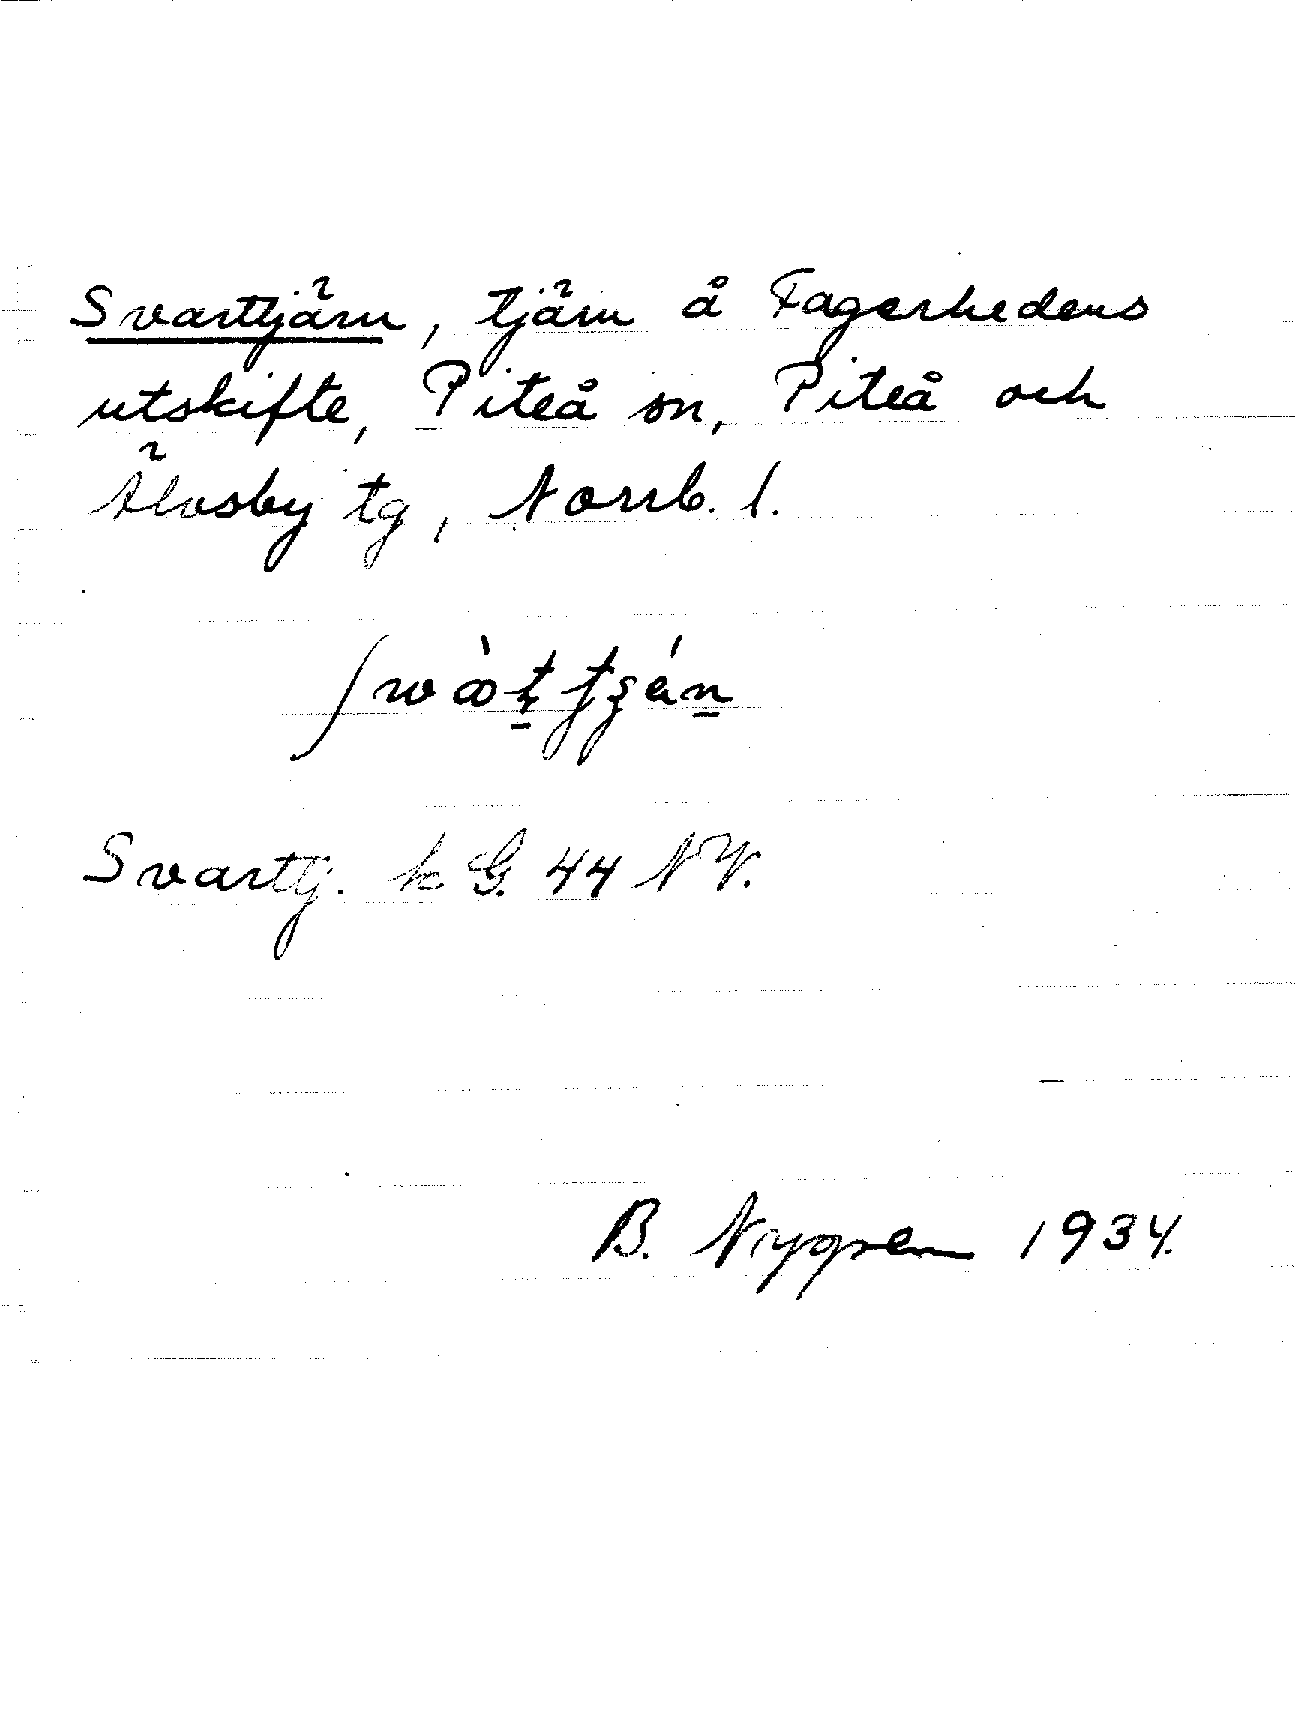 Svarttjärn, tjärn å Fagerhedens
utskifte, Piteå sn, Piteå och
Älvsby tg, Norrb. l.
Svarttj. k G. 44 NV.
B. Nygren 1934.